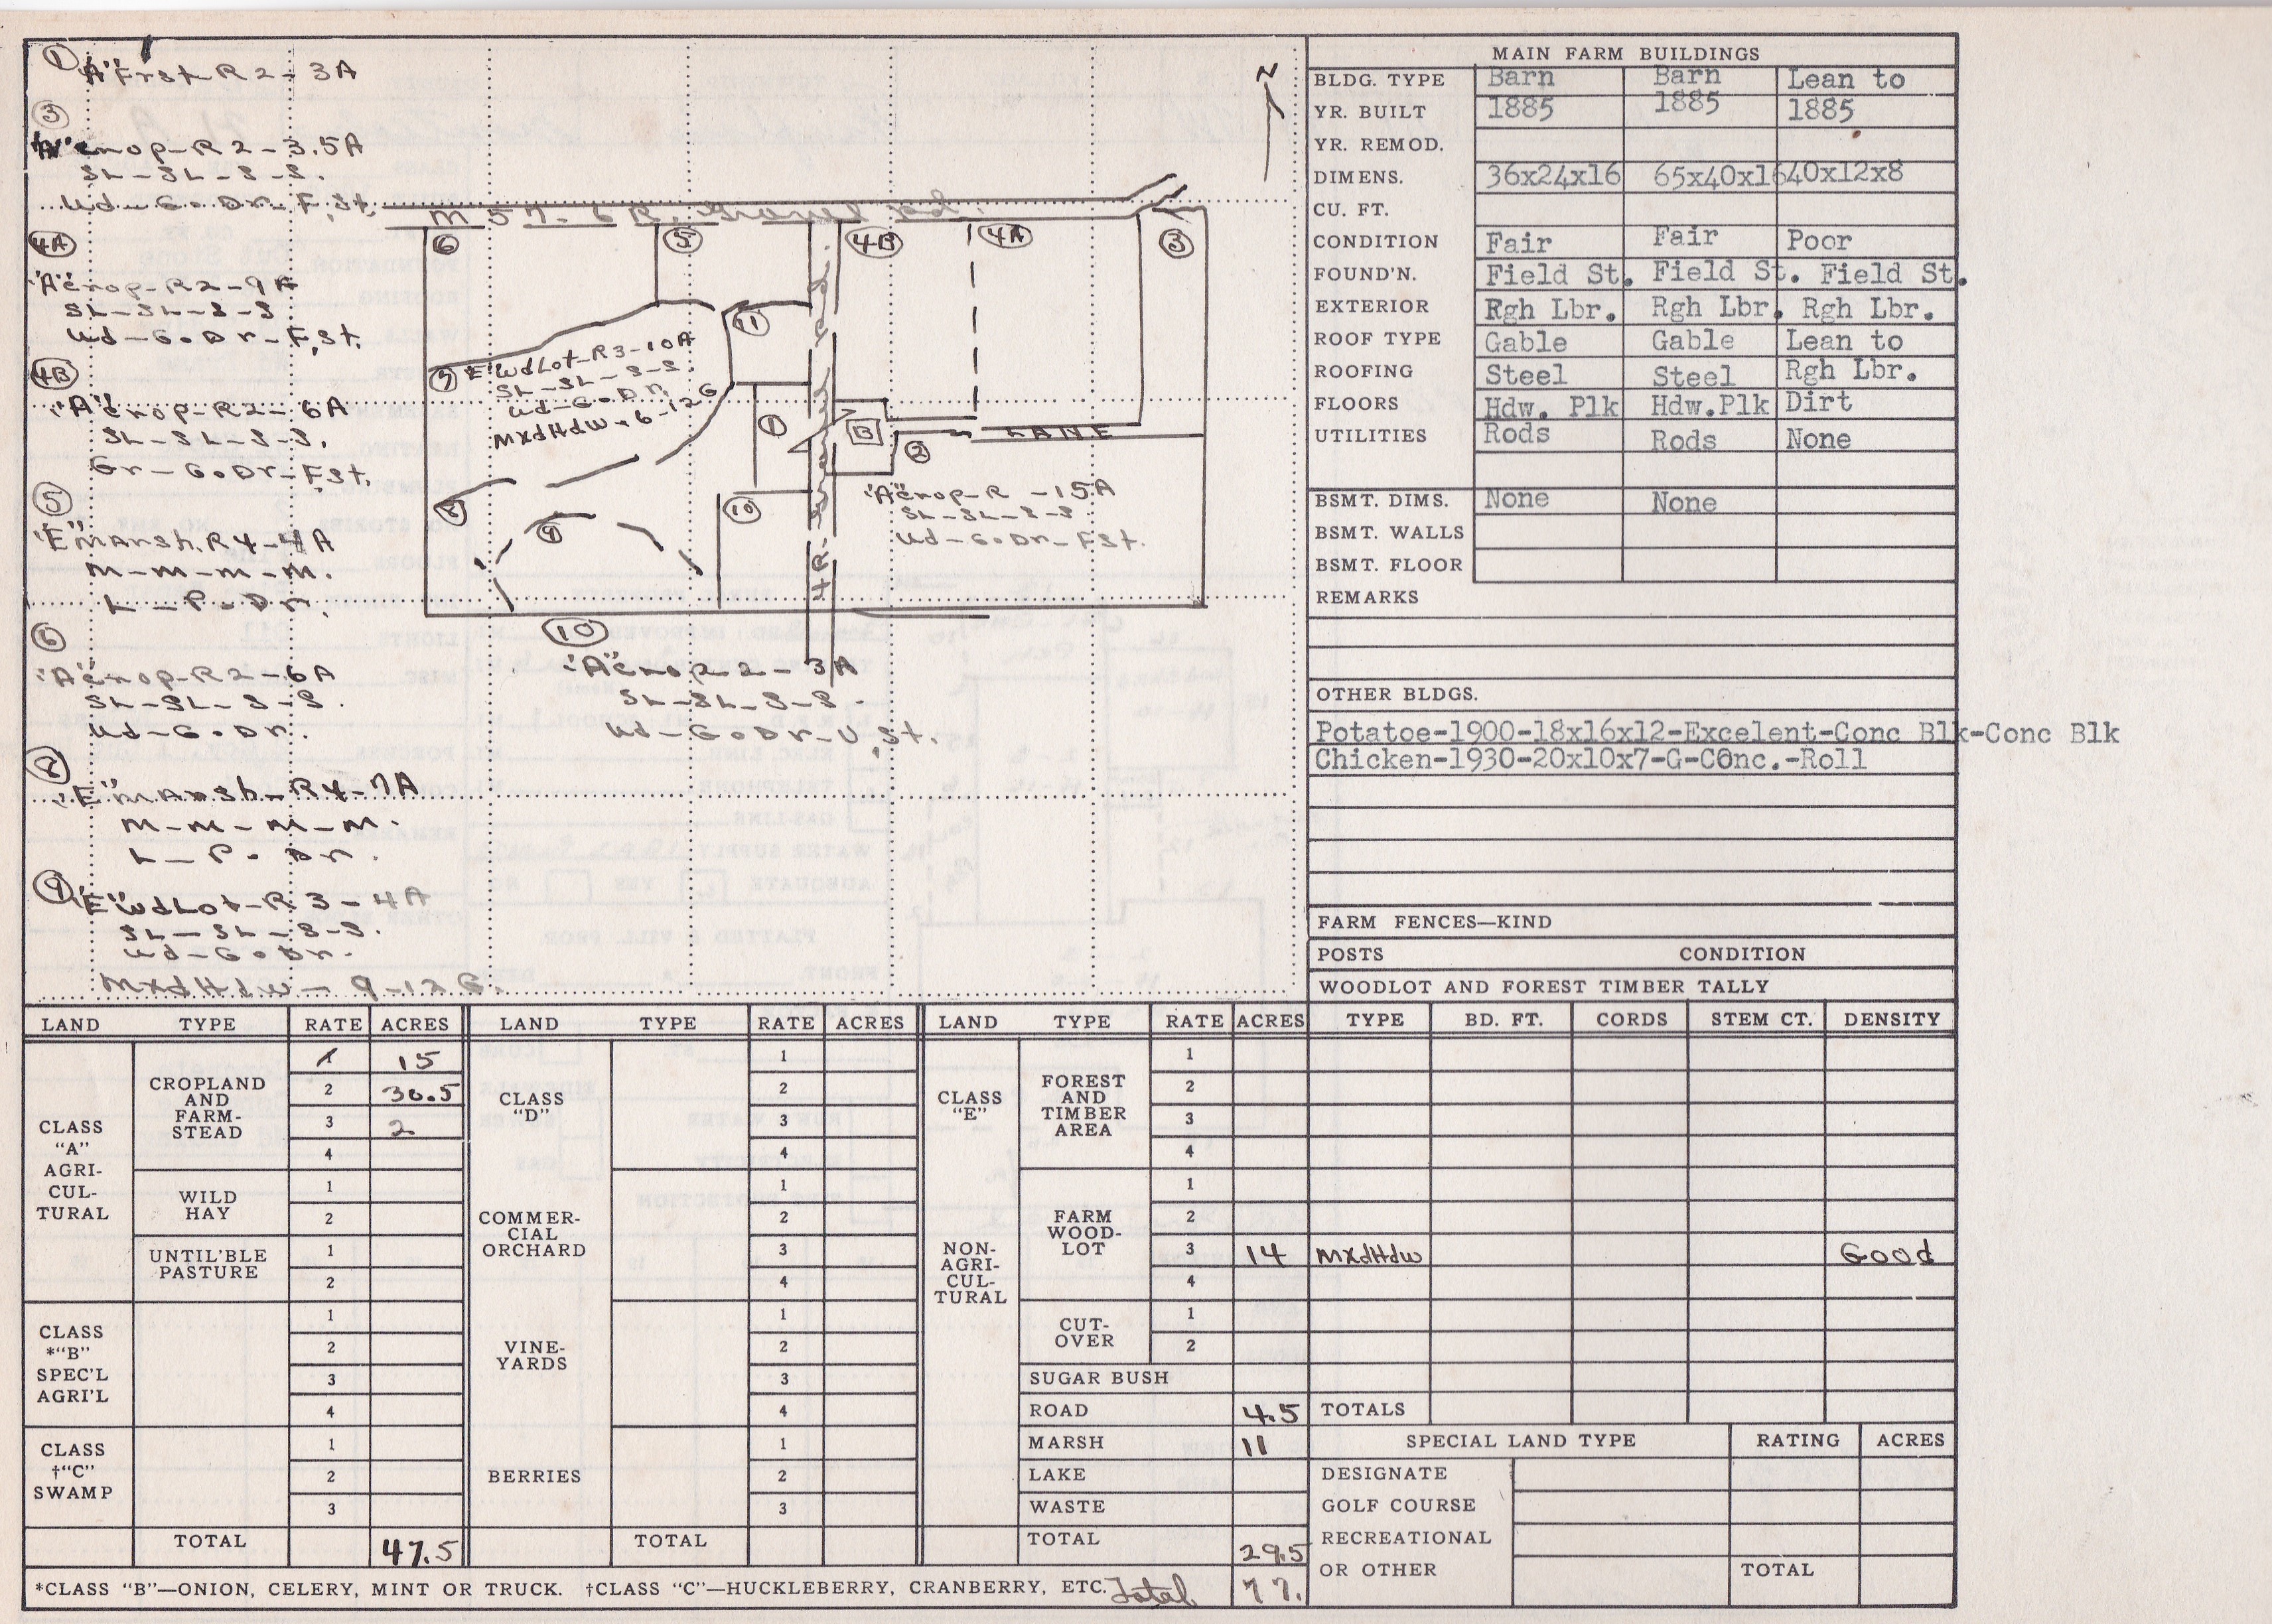 ① "A" Frst-R2-3A
③
"A" crop-R2-3.5A
SL-SL-S-S.
Ud-G.Dr-F.St.
④A
"A" crop-R2-9A
SL-SL-S-S
Ud-G.Dr-F.St.
④B
"A" crop-R2-6A
SL-SL-S-S.
Gr-G.Dr-F.St.
⑤
"E" Marsh.R4-4A
M-M-M-M.
L-P.Dr.
⑥
"A" crop-R2-6A
SL-SL-S-S.
Ud-G.Dr.
⑧
"E" Marsh-R4-7A
M-M-M-M.
L-P.Dr.
⑨ "E" WdLot-R3-4A
SL-SL-S-S.
Ud-G.Dr.
MxdHdw-9-12G.
N
M 57-6R. Gravel Rd.
⑥ ⑤ ④B ④A ③
⑪
⑦ "E" WdLot-R3-10A
SL-SL-S-S.
Ud-G.Dr.
MxdHdw-6-12G
① B ② LANE
⑧ ⑨ ⑩
4R.
"A" crop-R -15A
SL-SL-S-S
Ud-G.Dr-F.St.
⑩
"A" crop R2-3A
SL-SL-S-S.
Ud-G.Dr-U.St.
MAIN FARM BUILDINGS
BLDG. TYPE Barn Barn Lean to
YR. BUILT 1885 1885 1885
YR. REMOD.
DIMENS. 36x24x16 65x40x16 40x12x8
CU. FT.
CONDITION Fair Fair Poor
FOUND'N. Field St. Field St. Field St.
EXTERIOR Rgh Lbr. Rgh Lbr. Rgh Lbr.
ROOF TYPE Gable Gable Lean to
ROOFING Steel Steel Rgh Lbr.
FLOORS Hdw. Plk Hdw.Plk Dirt
UTILITIES Rods Rods None
BSMT. DIMS. None None
BSMT. WALLS
BSMT. FLOOR
REMARKS
OTHER BLDGS.
Potatoe-1900-18x16x12-Excelent-Conc Blk-Conc Blk
Chicken-1930-20x10x7-G-Conc.-Roll
FARM FENCES—KIND
POSTS CONDITION
WOODLOT AND FOREST TIMBER TALLY
TYPE BD. FT. CORDS STEM CT. DENSITY
MxdHdw Good
TOTALS
SPECIAL LAND TYPE RATING ACRES
DESIGNATE
GOLF COURSE
RECREATIONAL
OR OTHER TOTAL
LAND TYPE RATE ACRES LAND TYPE RATE ACRES LAND TYPE RATE ACRES
CLASS
"A"
AGRI-
CUL-
TURAL
CROPLAND
AND
FARM-
STEAD
1 15
2 30.5
3 2
4
WILD
HAY
1
2
UNTIL'BLE
PASTURE
1
2
CLASS
*"B"
SPEC'L
AGRI'L
1
2
3
4
CLASS
†"C"
SWAMP
1
2
3
TOTAL 47.5
CLASS
"D"
1
2
3
4
COMMER-
CIAL
ORCHARD
1
2
3
4
VINE-
YARDS
1
2
3
4
BERRIES
1
2
3
TOTAL
CLASS
"E"
NON-
AGRI-
CUL-
TURAL
FOREST
AND
TIMBER
AREA
1
2
3
4
FARM
WOOD-
LOT
1
2
3 14
4
CUT-
OVER
1
2
SUGAR BUSH
ROAD 4.5
MARSH 11
LAKE
WASTE
TOTAL 29.5
*CLASS "B"—ONION, CELERY, MINT OR TRUCK. †CLASS "C"—HUCKLEBERRY, CRANBERRY, ETC. Total 77.